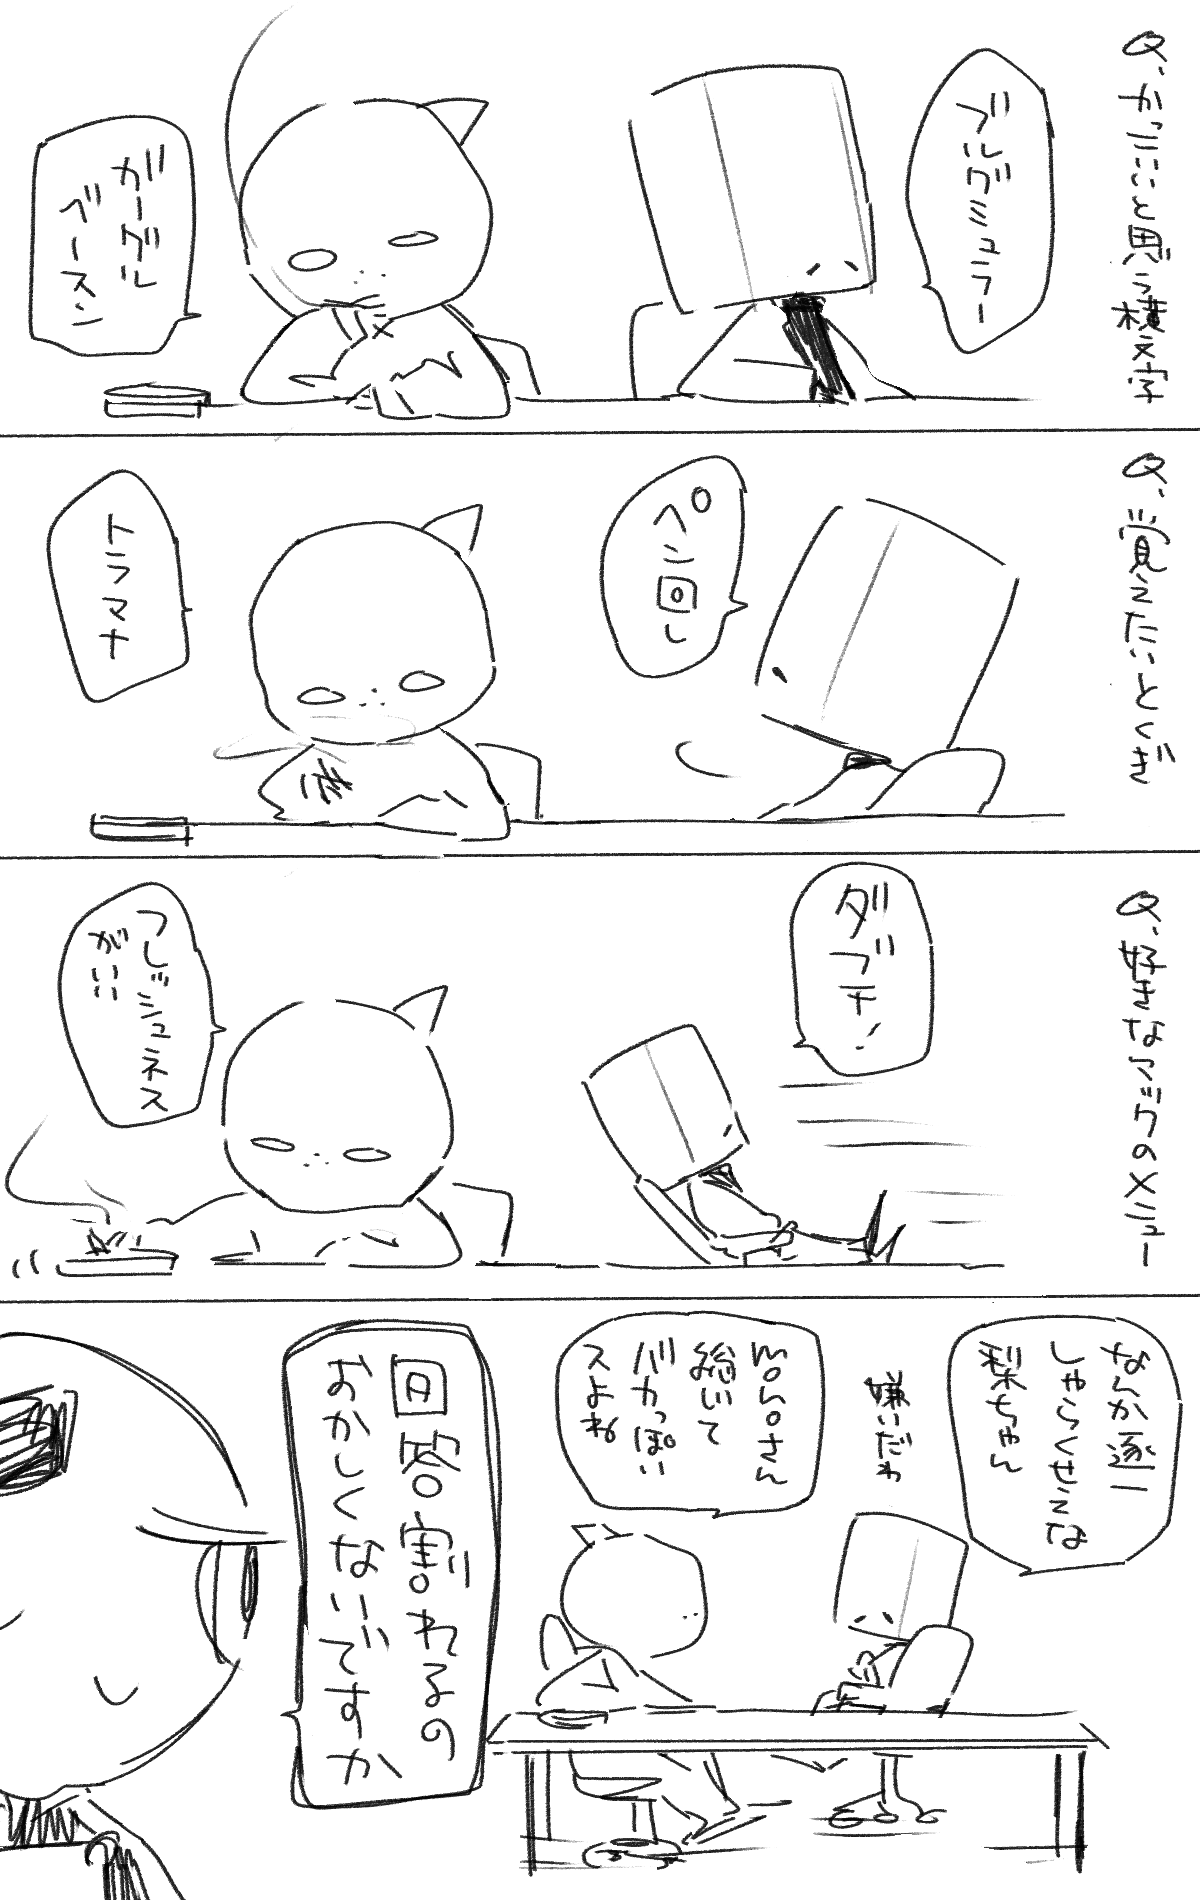 Q、かっこいいと思う横文字
ブルグミュラー
ガーグル
ベースン
Q、覚えたいとくぎ
ペン回し
トラマナ
Q、好きなマックのメニュー
ダブチ
フレッシュネス
がいい
なんか逐一
しゃらくせえな
琛ちゃん
嫌いだわ
momoさん
総じて
バカっぽい
スよね
回答割れるの
おかしくないですか